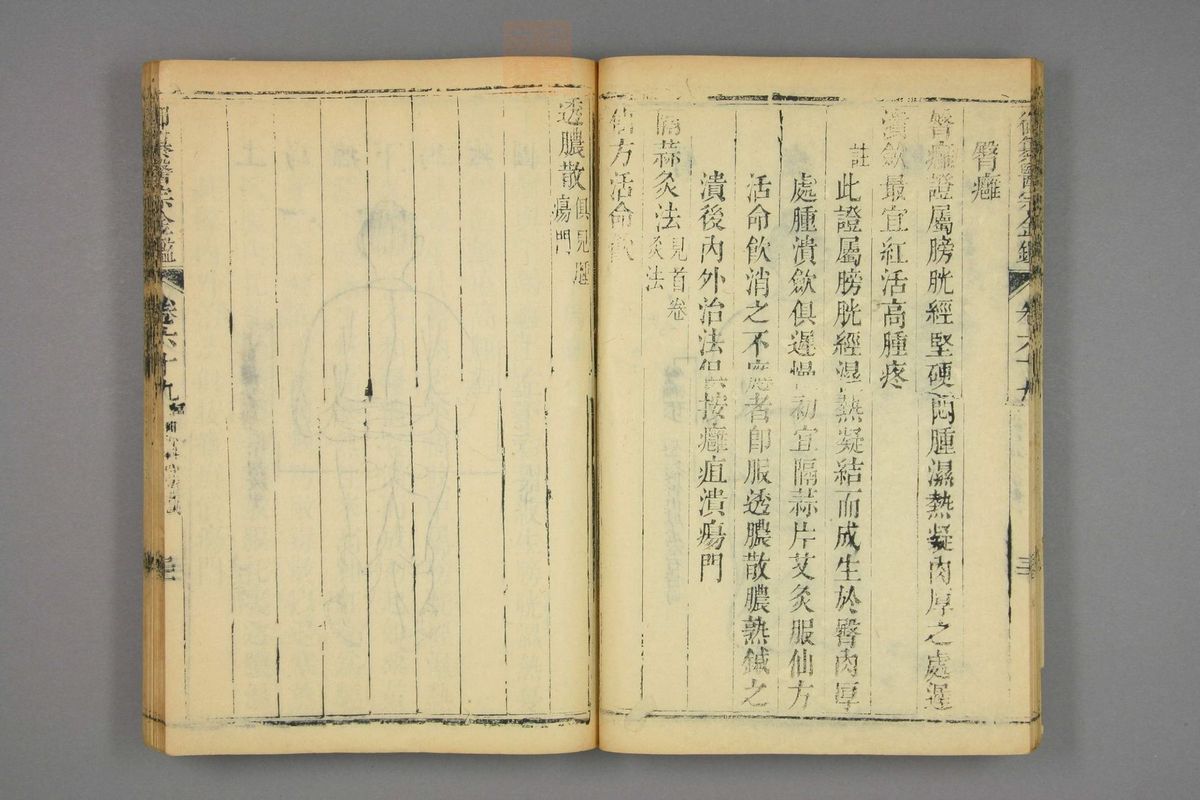 臀癰
臀癰證屬膀胱經堅硬悶腫濕熱凝肉厚之處遲
潰斂最宜紅活高腫疼
註
此證屬膀胱經濕熱凝結而成生於臀肉厚
處腫潰斂俱遲慢初宜隔蒜片艾灸服仙方
活命飲消之不應者即服透膿散膿熟鍼之
潰後內外治法俱按癰疽潰瘍門
隔蒜灸法見首卷灸法
仙方活命飲
透膿散俱見腫瘍門
御纂醫宗金鑑 卷六十九
御纂醫宗金鑑 卷六十九